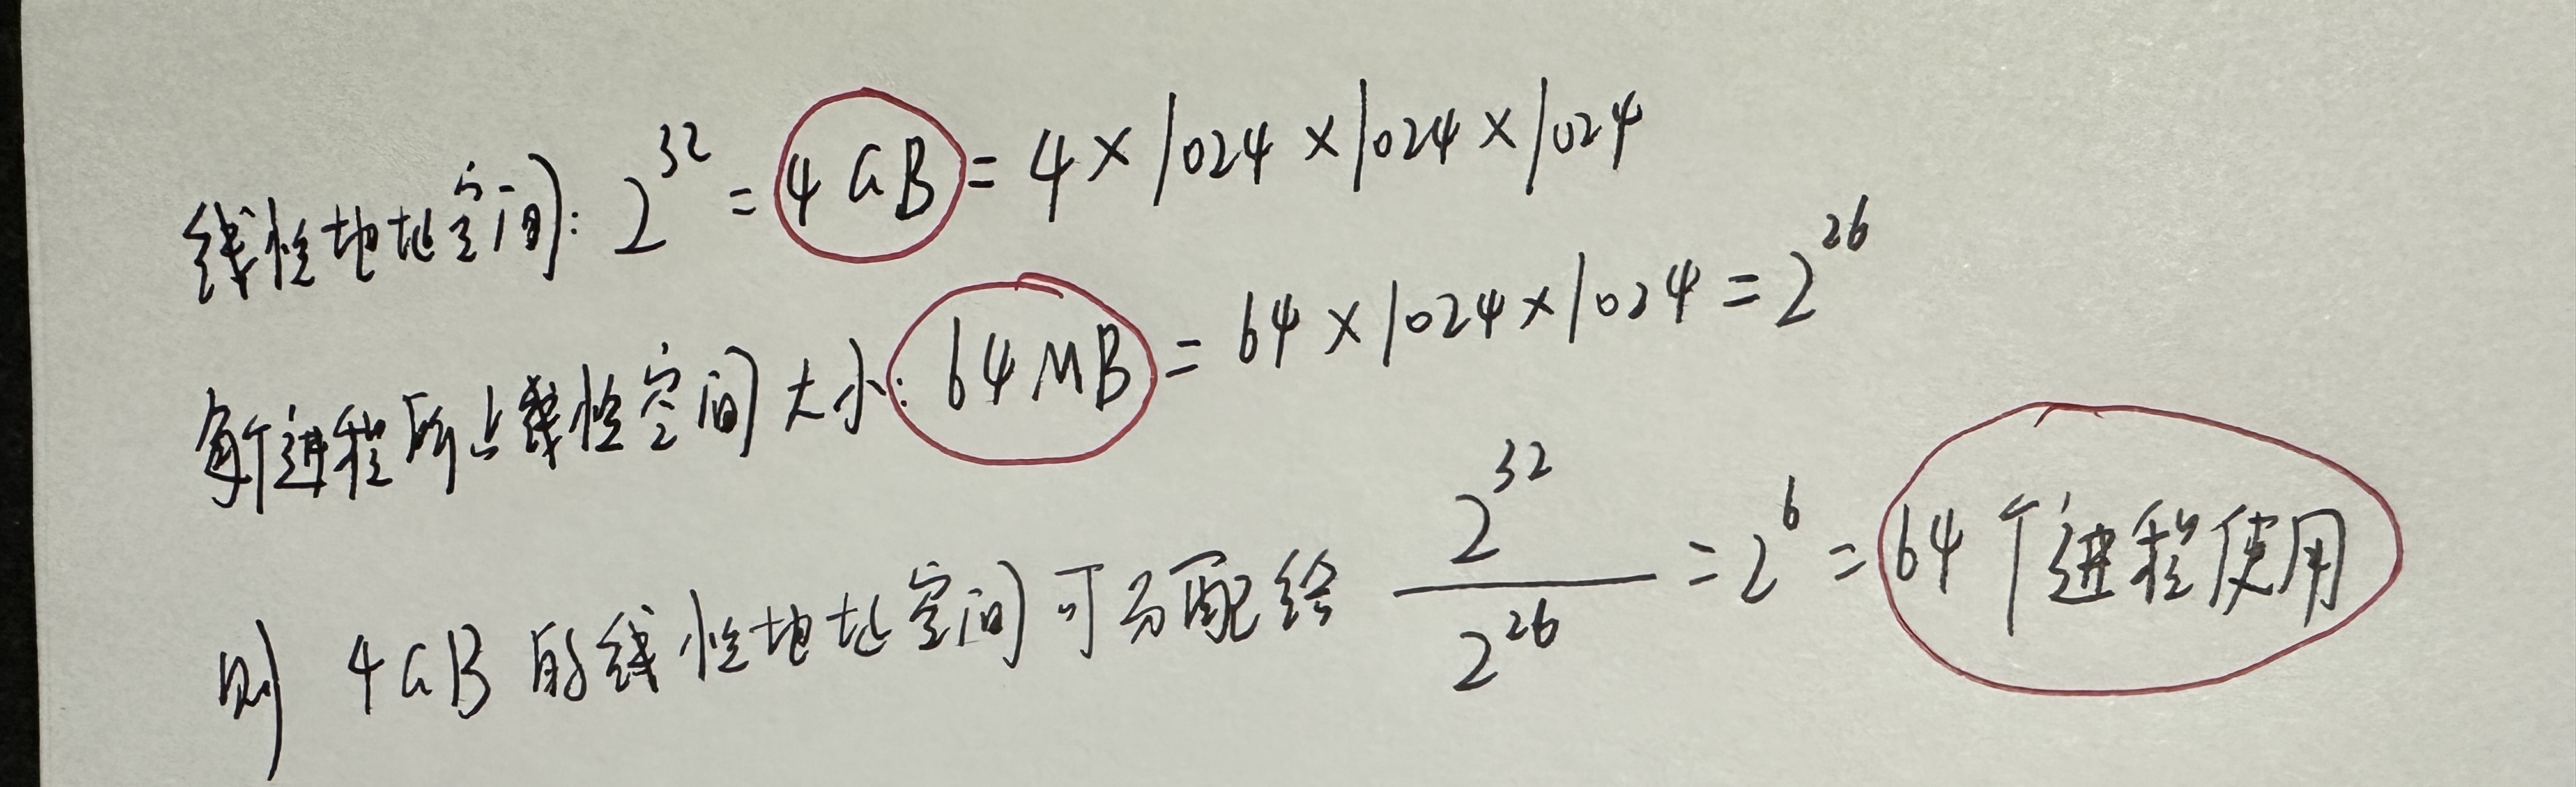 线性地址空间: 2^32 = 4GB = 4×1024×1024×1024
每个进程所占线性空间大小: 64MB = 64×1024×1024 = 2^26
则 4GB 的线性地址空间可分配给 2^32 / 2^26 = 2^6 = 64个进程使用